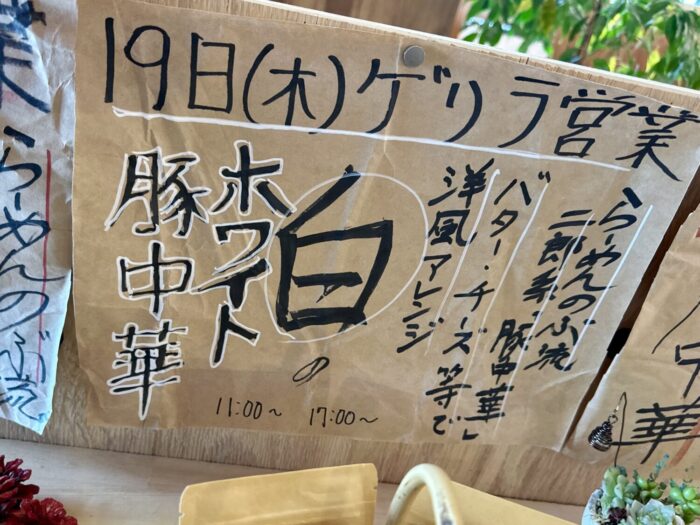 19日(木)ゲリラ営業
らーめんのぶ流
二郎系「豚中華」
バター・チーズ等で
洋風アレンジ
白の
ホワイト
豚中華
11:00〜 17:00〜
らーめんのぶ流
業
中華